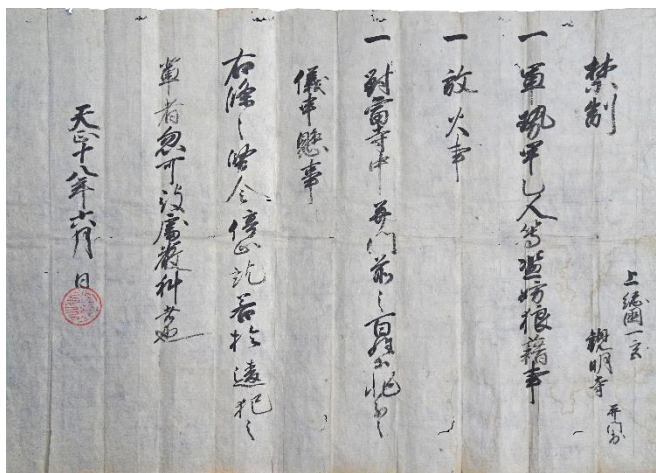 禁制
上総國一宮
観明寺
并門前
一 軍勢甲乙人等濫妨狼藉事
一 放火事
一 對當寺中并門前之百姓等非分之
儀申懸事
右條々堅令停止訖若於違犯之
輩者忽可被處嚴科者也
天正十八年六月 日